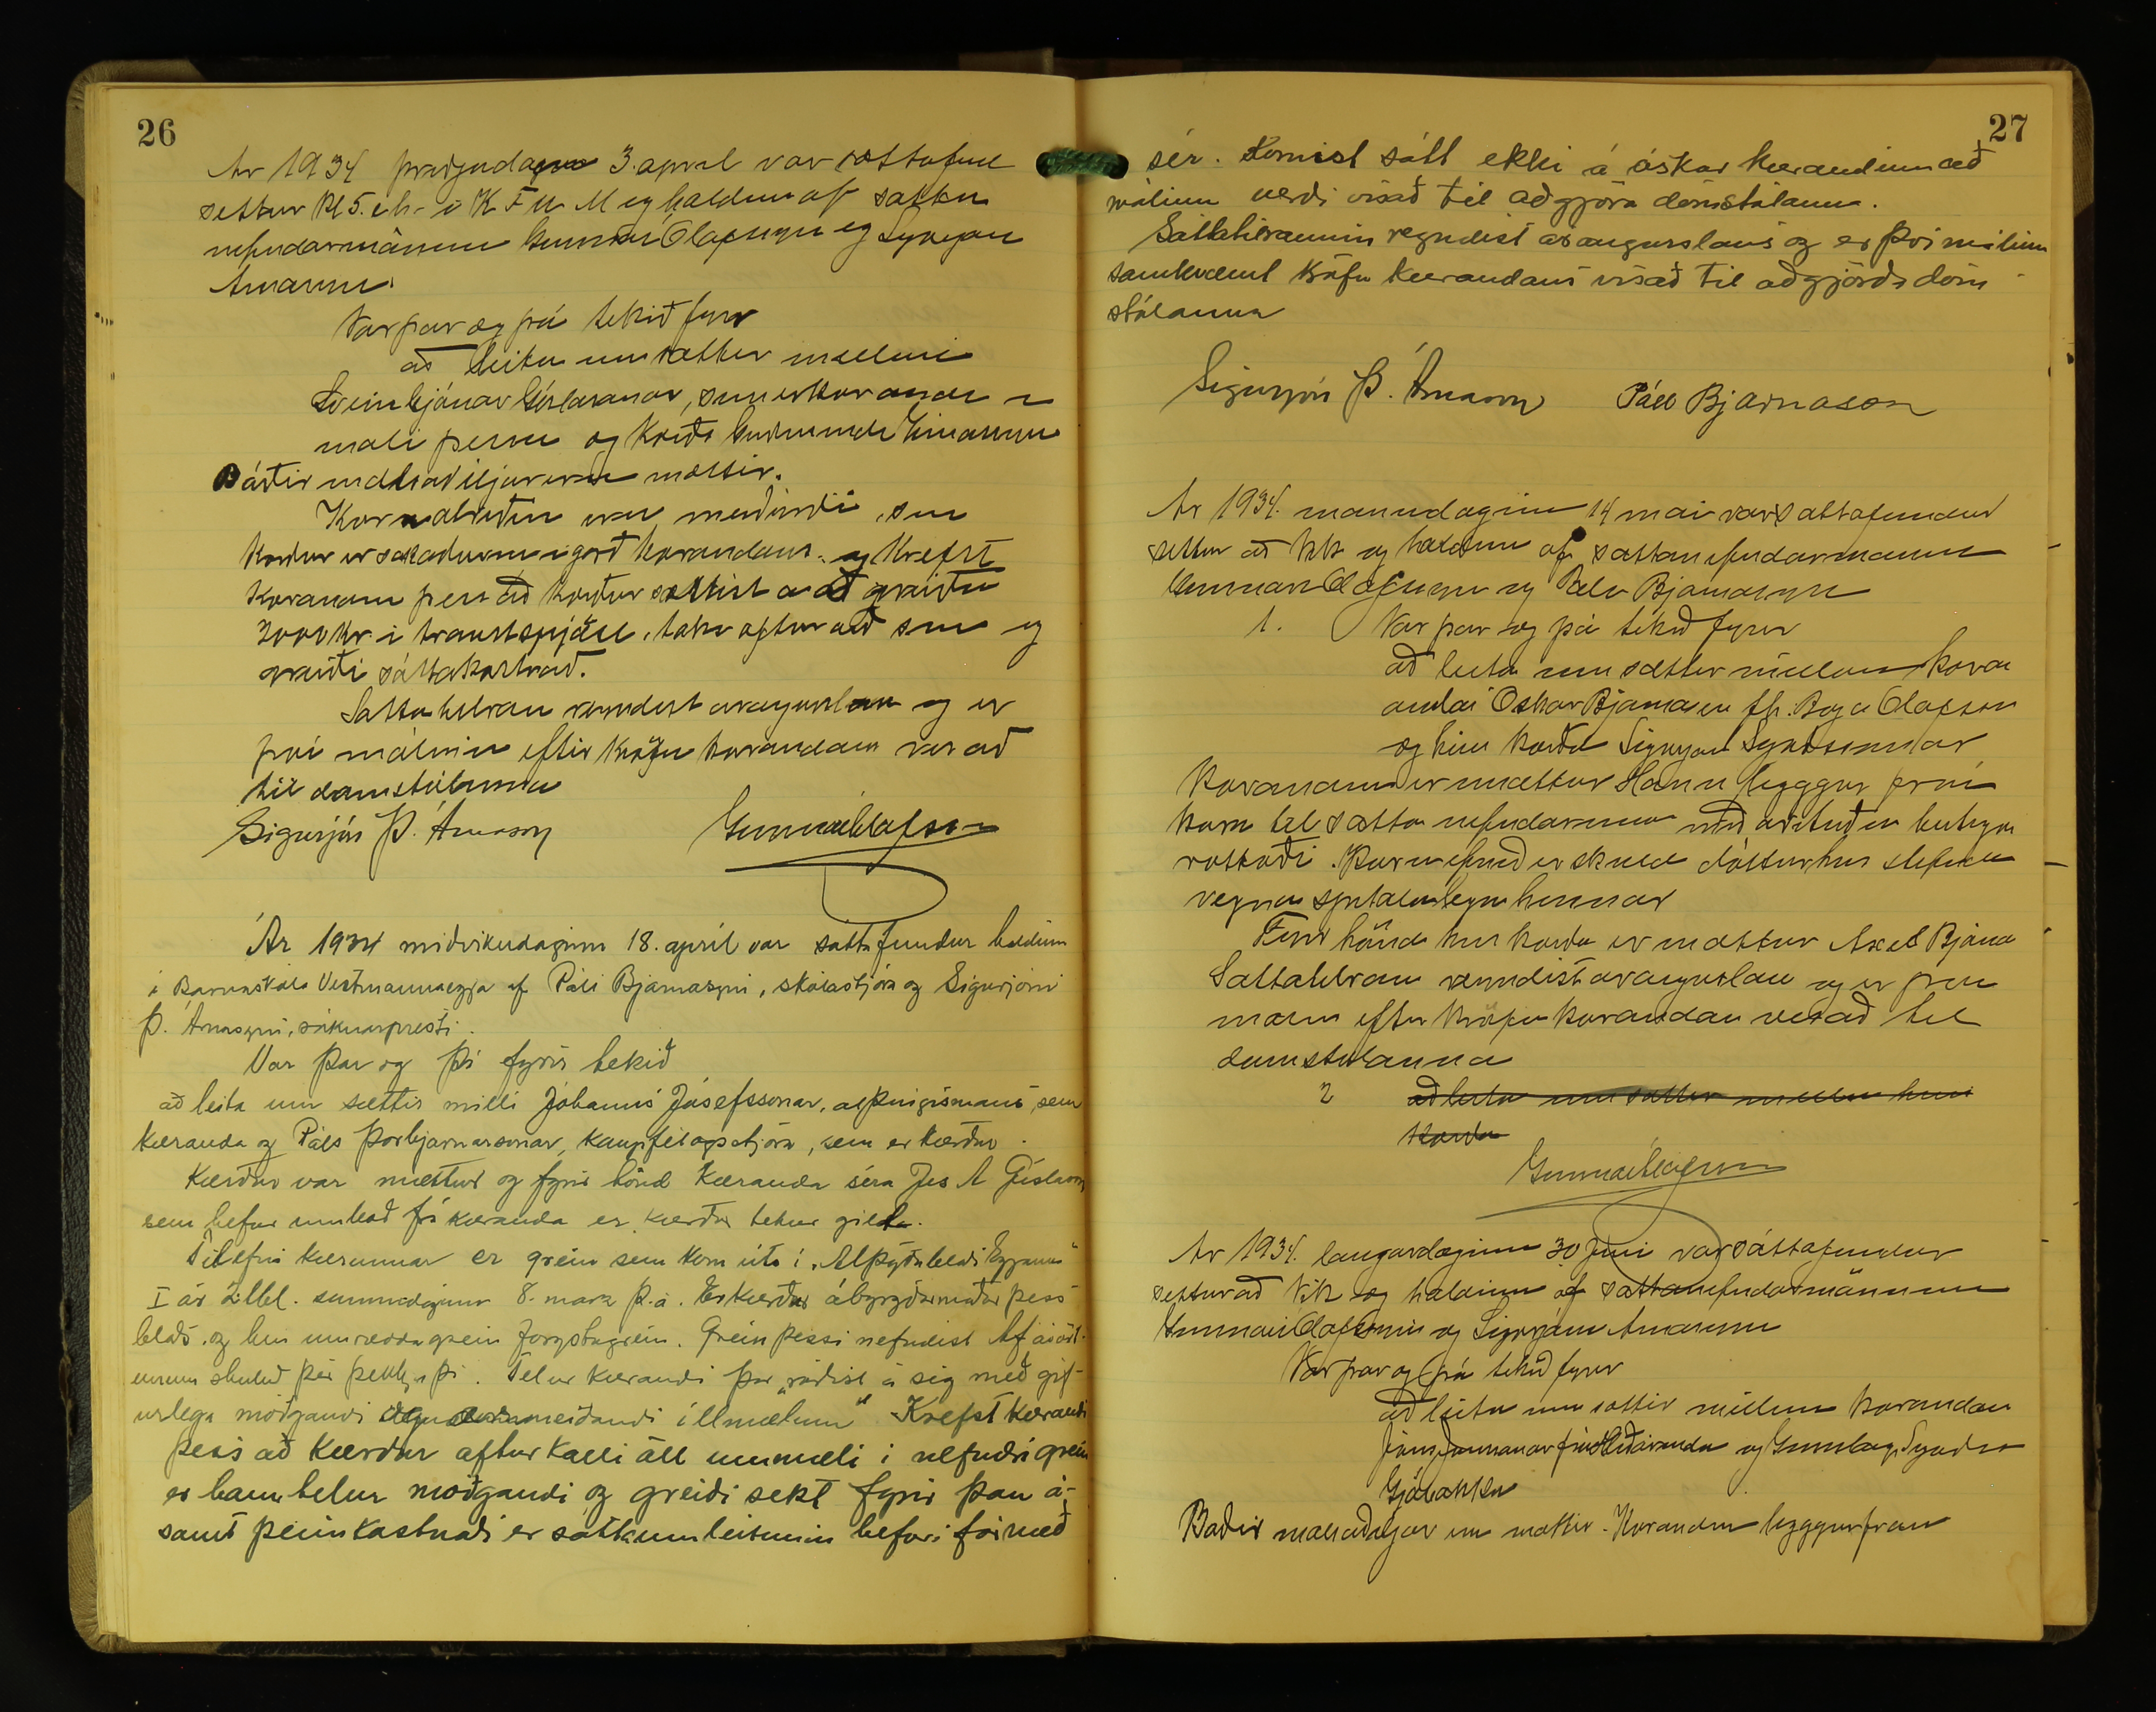 26
Ár 1934 þriðjudaginn 3. apríl var sáttafund
settur kl 5. e.h. í K F U M og haldinn af sátta
nefndarmönnum Gunnari Ólafssyni og Sigurjóni
Árnasyni.
Var þar og þá tekið fyrir
að leita um sættir milli
Sveinbjörnar Gíslasonar, sem er kærandi í
máli þessu og kærða Guðmundi Einarssyni
Báðir málsaðiljar eru mættir.
Kæruatriðin eru meiðyrði, sem
kærður er sakaður um í garð kærandans. og krefst
kærandinn þess að kærður sættist á að greiða
2000 kr. í , taki aftur orð sín og
greiði sáttakostnað.
Sátta tilraun reyndist árangurslaus og er
því málinu eftir kröfu kærandans vísað
til dómstólanna
Sigurjón Þ. Árnason Gunnar Ólafsson
Ár 1934 miðvikudaginn 18. apríl var sáttafundur haldinn
í Barnaskóla Vestmannaeyja af Páli Bjarnasyni, skólastjóra og Sigurjóni
Þ. Árnasyni, sóknarpresti.
Var þar og þá fyrir tekið
að leita um sættir milli Jóhanns Jósefssonar, alþingismanns sem
kæranda og Páls Þorbjarnarsonar, kaupfélagsstjóra, sem er kærður.
Kærður var mættur og fyrir hönd kæranda séra Jes A Gíslason
sem hefur umboð frá kæranda er kærður tekur gilt.
Tilefni kærunnar er grein sem kom út í „Alþýðublaði Eyjanna"
I ár 2. tbl. sunnudaginn 8. mars þ.á. Er kærður ábyrgðarmaður þess
blaðs. og hin umrædda grein forystugrein. Grein þessi nefndist Af ávöxt-
unum skuluð þér þekkja þá. Telur kærandi þar „ráðist á sig með gíf-
urlega móðgandi og ærumeiðandi illmælum" Krefst kærandi
þess að kærður afturkalli öll ummæli í nefndri grein
er hann telur móðgandi og greiði sekt fyrir þau á-
samt þeim kostnaði er sáttaumleitunin hefur í för með
27
sér. Komist sátt ekki á óskar kærandinn að
málinu verði vísað til aðgjöra dómstólanna.
Sáttatilraunin reyndist árangurslaus og er því málinu
samkvæmt kröfu kærandans vísað til aðgjörða dóm
stólanna
Sigurjón Þ. Árnason Páll Bjarnason
Ár 1934. mánudaginn 14 maí var sáttafundur
settur að Vík og haldinn af sáttanefndarmönnum
Gunnari Ólafssyni og Páli Bjarnasyni
1. Var þar og þá tekið fyrir
að leita um sættir millum kær
andai Óskar Bjarnasen fh. Ólafsson
og hins kærða Sigurjóns
Kærandinn er mættur Hann leggur fram
kæru til sátta nefndarinnar
. Kæruefnið er skuld dóttur hins
vegna spítalalegu hennar
Fyrir hönd hins kærða er mættur Axel Bjarna
Sáttatilraun reyndist árangurslaus og er því
málinu eftir kröfu kærandans vísað til
dómstólanna
2 að leita um sættir millum hins
kærða
Gunnar Ólafsson
Ár 1934. laugardaginn 30. Júní var sáttafundur
settur að Vík og haldinn af sáttanefndarmönnum
Gunnari Ólafssyni og Sigurjóni Árnasyni
Var þar og þá tekið fyrir
að leita um sættir millum kærandans
Jóns frá Hlíðarenda og
Gjábakka
Báðir málsaðiljar eru mættir. Kærandinn leggur fram